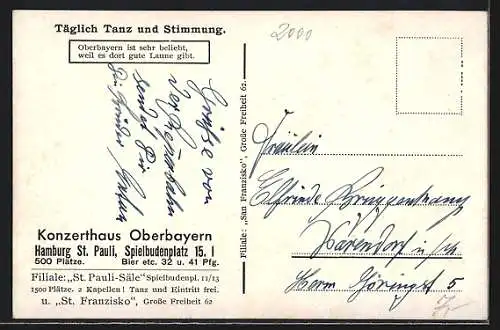 Täglich Tanz und Stimmung.
Oberbayern ist sehr beliebt,
weil es dort gute Laune gibt.
2000
Grüße von
der Reeperbahn
sendet Dir
Dein Bruder
Konzerthaus Oberbayern
Hamburg St. Pauli, Spielbudenplatz 15. I
500 Plätze. Bier etc. 32 u. 41 Pfg.
Filiale: „St. Pauli-Säle" Spielbudenpl. 11/13
1500 Plätze. 2 Kapellen! Tanz und Eintritt frei.
u. „St. Franzisko", Große Freiheit 62
Filiale: „San Franzisko", Große Freiheit 62.
Fräulein
Elfriede
Warendorf i/W
Herm. Göringst 5